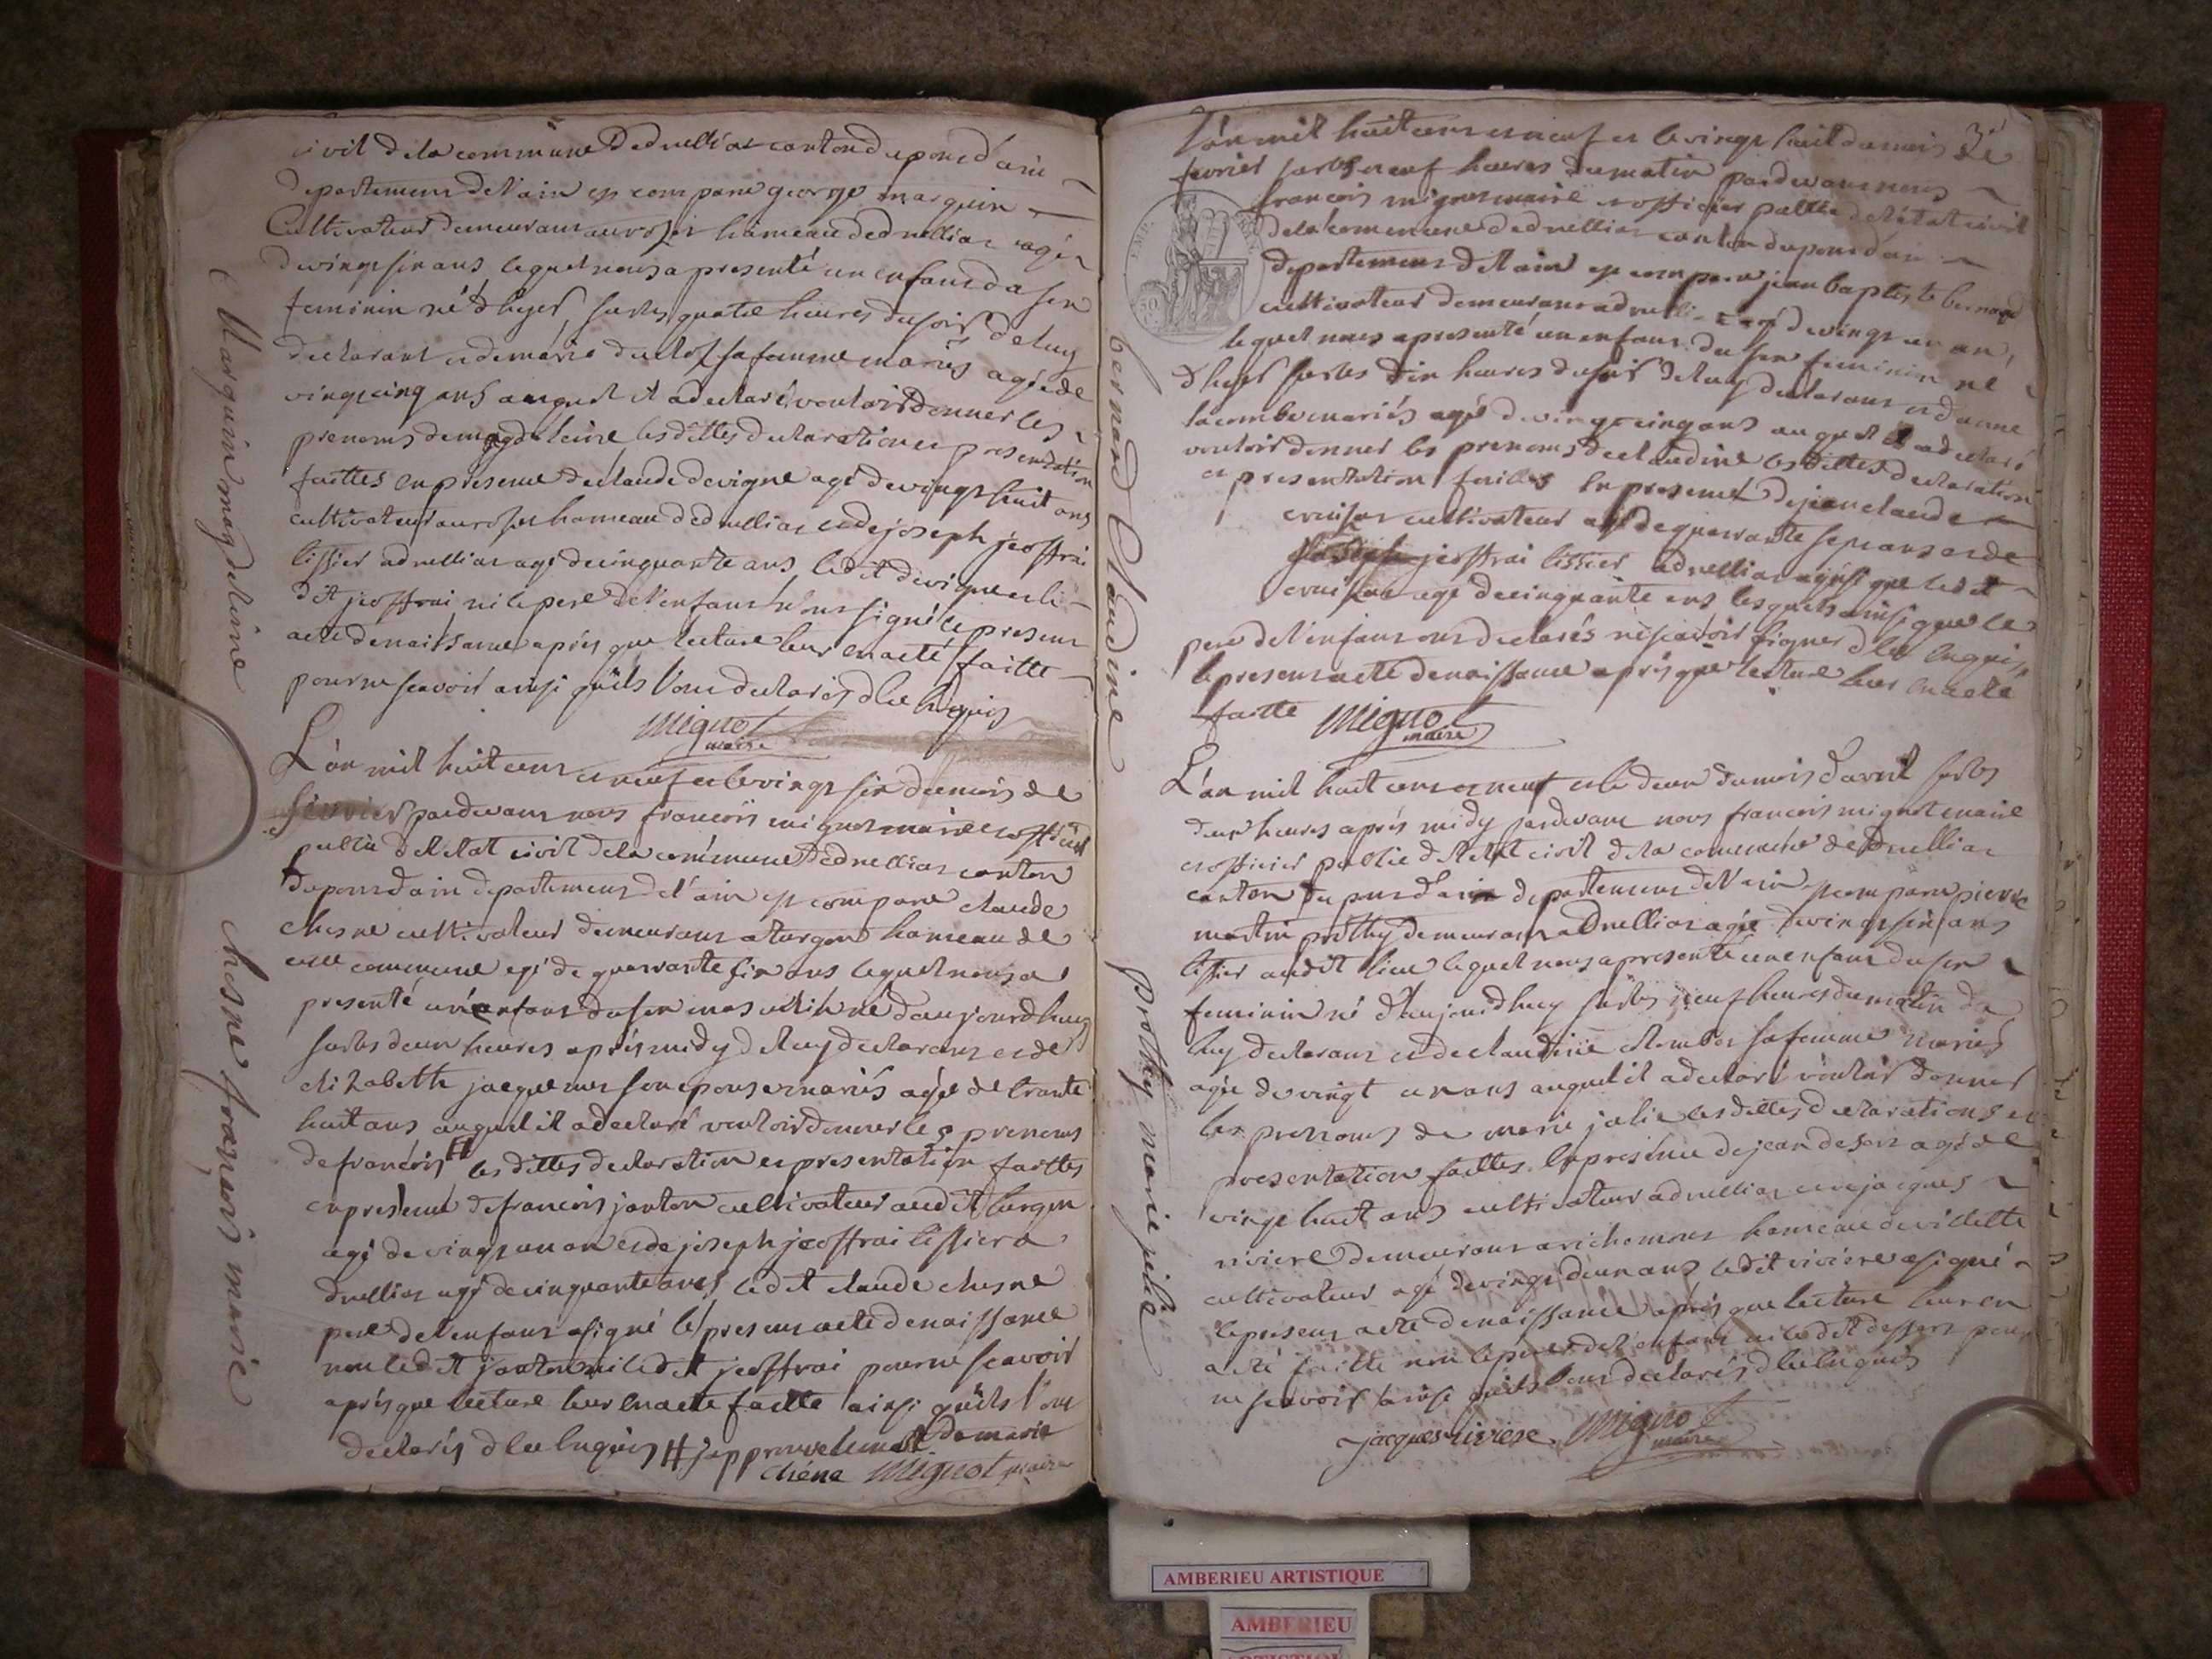 civil de la commune de druillias canton du pons d'ain
departemens de l'ain est comparu george marquin
cultivateur demeurans au rosei hameau de druillias agé
de vings six ans lequel nous a presenté un enfans du sex
feminin né d'hyer sur les quatre heures du soir de luy
declarant et de marie duclos sa femme mariés agée de
vings cinq ans auquel il a declaré vouloir donner les
prenoms de magdeleine les dittes declaration et presentation
faittes en presence de claude devigne agé de vings huit ans
cultivateur au rosei hameau de druillias et de joseph jeoffrai
tissier a druillias agé de cinquante ans ledit devigne et le
dit jeoffrai ni le pere de l'enfans n'ons signé le presens
acte de naissance après que lecture leur en a eté faitte
pour ne scavoir ainsi qu'ils l'ons declarés d'ce enquis
Mignot
maire
Marquin magdeleine
L'an mil huit cens et neuf et le vings six du mois de
fevrier pardevans nous francois mignot maire et officier
public de l'etat civil de la commune de druillias canton
du pons d'ain departemens de l'ain est comparu claude
chesne cultivateur demeurans a turgon hameau de
cette commune agé de quarrante six ans lequel nous a
presenté un enfans du sex masculin né d'aujourdhuy
sur les deux heures après midy de luy declarans et de
elizabette jaquemet son epouse mariés agée de trante
huit ans auquel il a declaré vouloir donner les prenoms
de francois # les dittes declaration et presentation faittes
en presence de francois janton cultivateur audit turgon
agé de vings un an et de joseph jeoffrai tissier a
druillias agé de cinquante ans ledit claude chesne
pere de l'enfans a signé le presens acte de naissance
non ledit janton ni ledit jeoffrai pour ne scavoir
après que lecture leur en a eté faitte ainsi qu'ils l'ons
declarés d'ce enquis # japprouve de marie
chéne Mignot maire
chesne françois marie
3e
L'an mil huit cens et neuf et le vings huit du mois de
fevrier sur les neuf heures du matin pardevans nous
francois mignot maire et officier public de l'etat civil
de la commune de druillias canton du pons d'ain
departemens de l'ain est comparu jean baptiste bernard
cultivateur demeurans a druillias agé de vings un an
lequel nous a presenté un enfans du sex feminin né
d'hyer sur les dix heures du soir de luy declarans et d'anne
lacombe mariés agée de vings cinq ans auquel il a declaré
vouloir donner les prenoms de claudine les dittes declaration
et presentation faittes en presence de jean claude
cultivateur agé de quarrante sept ans et de
joseph jeoffrai tissier a druillias ainsi que ledit
agé de cinquante ans lesquels ainsi que le
pere de l'enfans ons declarés ne scavoir signer d'ce enquis
le presens acte de naissance après que lecture leur en a eté
faitte Mignot
maire
bernard Claudine
L'an mil huit cens et neuf et le deux du mois d'avril sur les
deux heures après midy pardevans nous francois mignot maire
et officier public de l'etat civil de la commune de druillias
canton du pons d'ain departemens de l'ain est comparu pierre
martin prothy demeurans a druillias agé de vings six ans
tissier audit lieu lequel nous a presenté un enfans du sex
feminin né d'aujourdhuy sur les neuf heures du matin de
luy declarans et de claudine sa femme mariés
agée de vingt un ans auquel il a declaré vouloir donner
les prenoms de marie julie les dittes declarations et
presentation faittes en presence de jean desers agé de
vings huit ans cultivateur a druillias et de jacques
riviere demeurans a richemons hameau de villette
cultivateur agé de vings deux ans ledit riviere a signé
le presens acte de naissance après que lecture leur en
a eté faitte non le pere de l'enfans ni ledit desers pour
ne scavoir ainsi qu'ils l'ons declarés d'ce enquis
jacques riviere Mignot
maire
prothy marie julie
AMBERIEU ARTISTIQUE
AMBERIEU
ARTISTIQUE